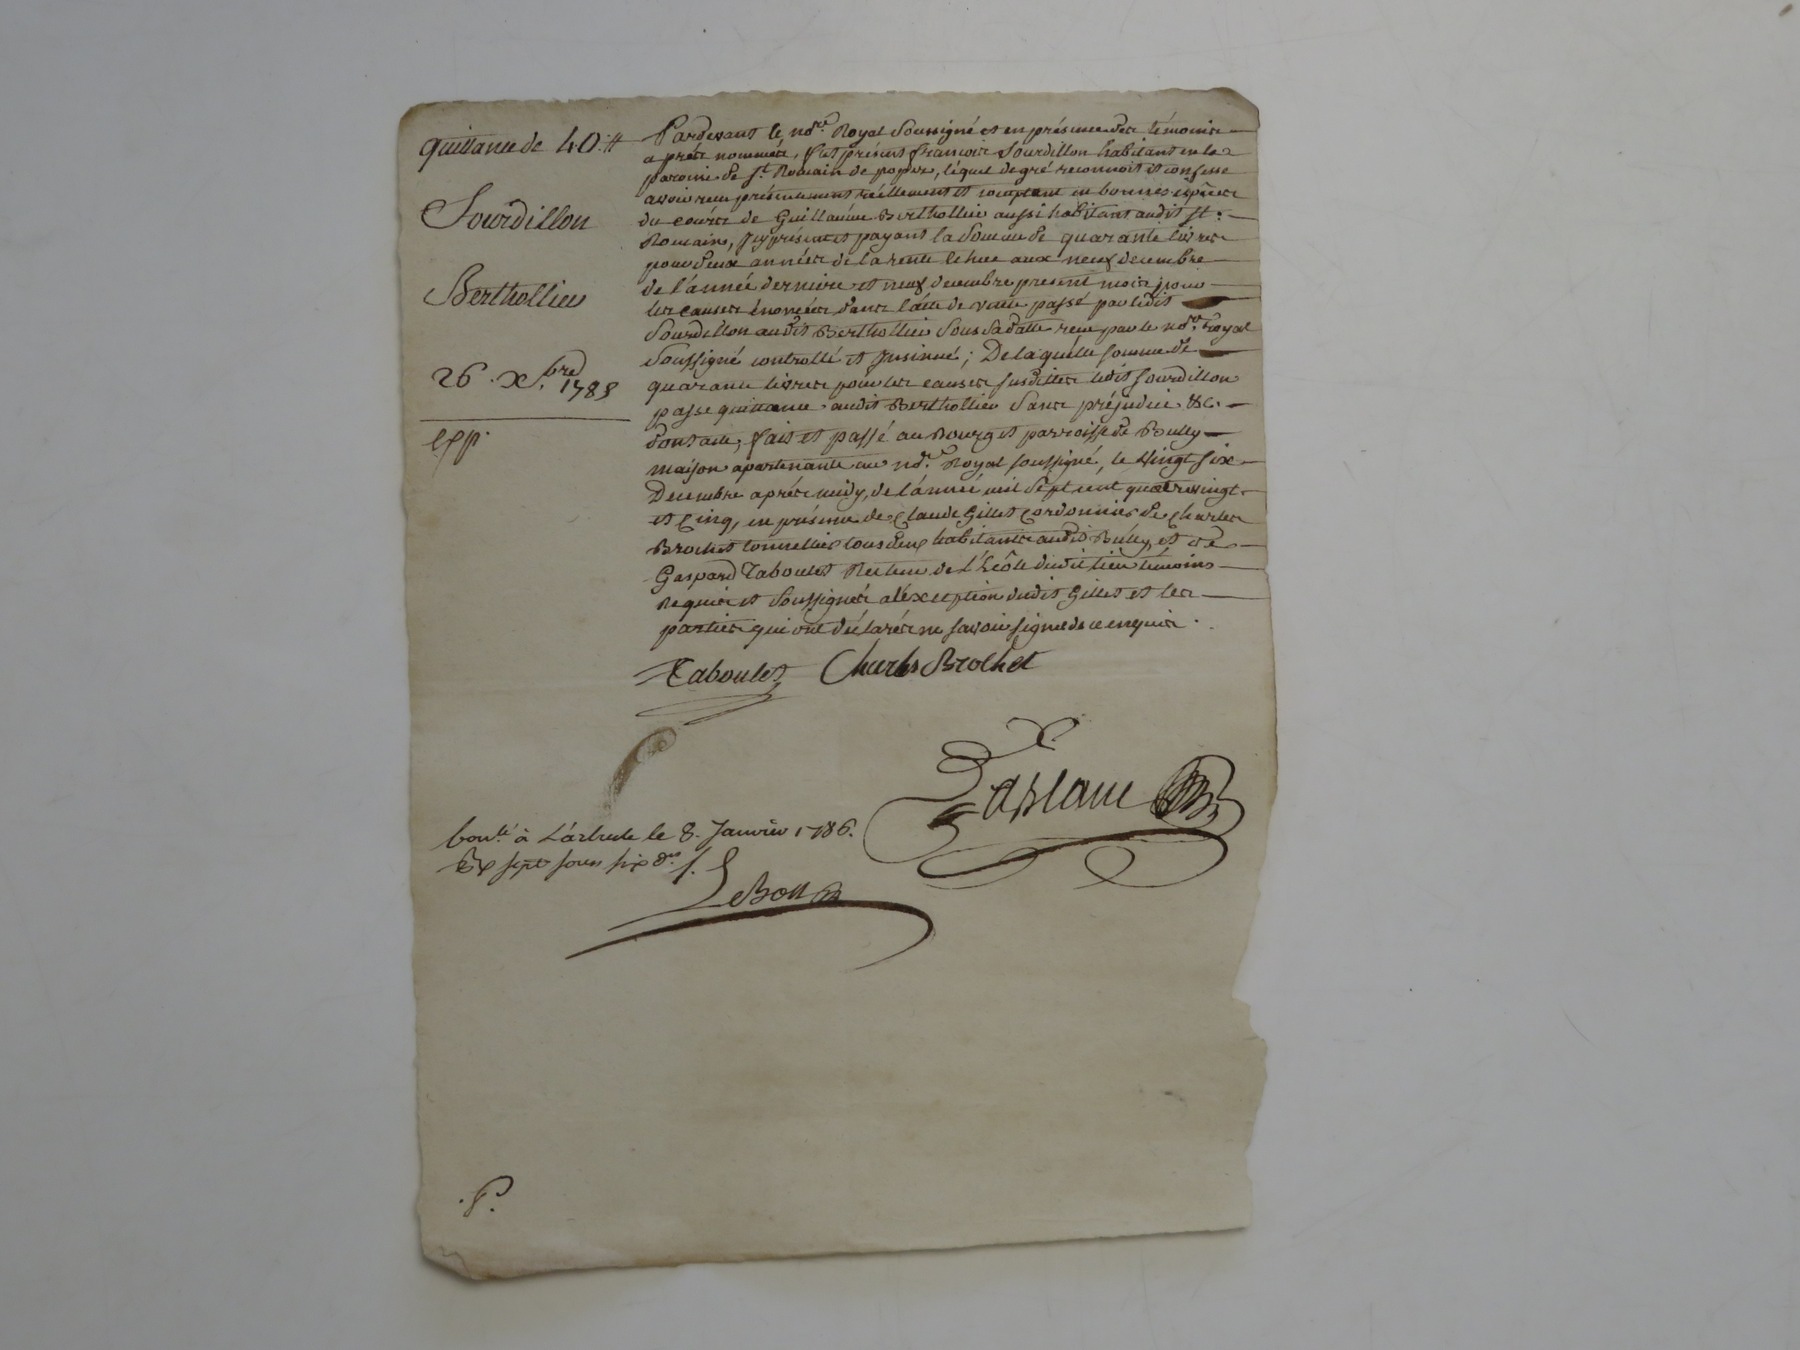 quittance de 40.#
Sourdillon
Berthollier
26. Xbre 1785
exp.
Pardevant le nore. Royal soussigné et en présence des témoins
aprés nommés, fut présent francois Sourdillon habitant en la
paroisse de st. Romain de popez, lequel de gré reconnoit et confesse
avoir reçu présentement réellement et comptant en bonnes espêces
du cours de Guillaume Bertholliers aussi habitant audit st.
Romain, jcy présent et payant la somme de quarante livres
pour deux années de la rente échue aux neuf decembre
de l'année derniere et neuf decembre present mois; pour
les causes énoncées dans l'acte de vente passé par ledit
Sourdillon audit Bertholliers sous sa datte reçu par le nore. royal
soussigné controllé et jnsinué; De laquelle somme de
quarante livres pour les causes susdittes ledit sourdillon
passe quittance audit Bertholliers sans préjudice &c.
dont acte, fait et passé au Bourg et parroisse de Bully
maison apartenante au nore. Royal soussigné, le vingt six
Decembre aprés midy, de l'année mil sept cent quatre vingt
et cinq, en présence de Claude Gillet cordonnier de Charles
Brochet tonnellier tous deux habitants audit Bully, et de
Gaspard Taboulet Recteur de l'École dudit lieu témoins
Requis et soussignés a léxception dudit Gillet et les
parties qui ont déclarés ne savoir signer de ce enquis.
Taboulet Charles Brochet
bonté à L'arbresle le 8. Janvier 1786.
sept sous six drs. f.
LeBon